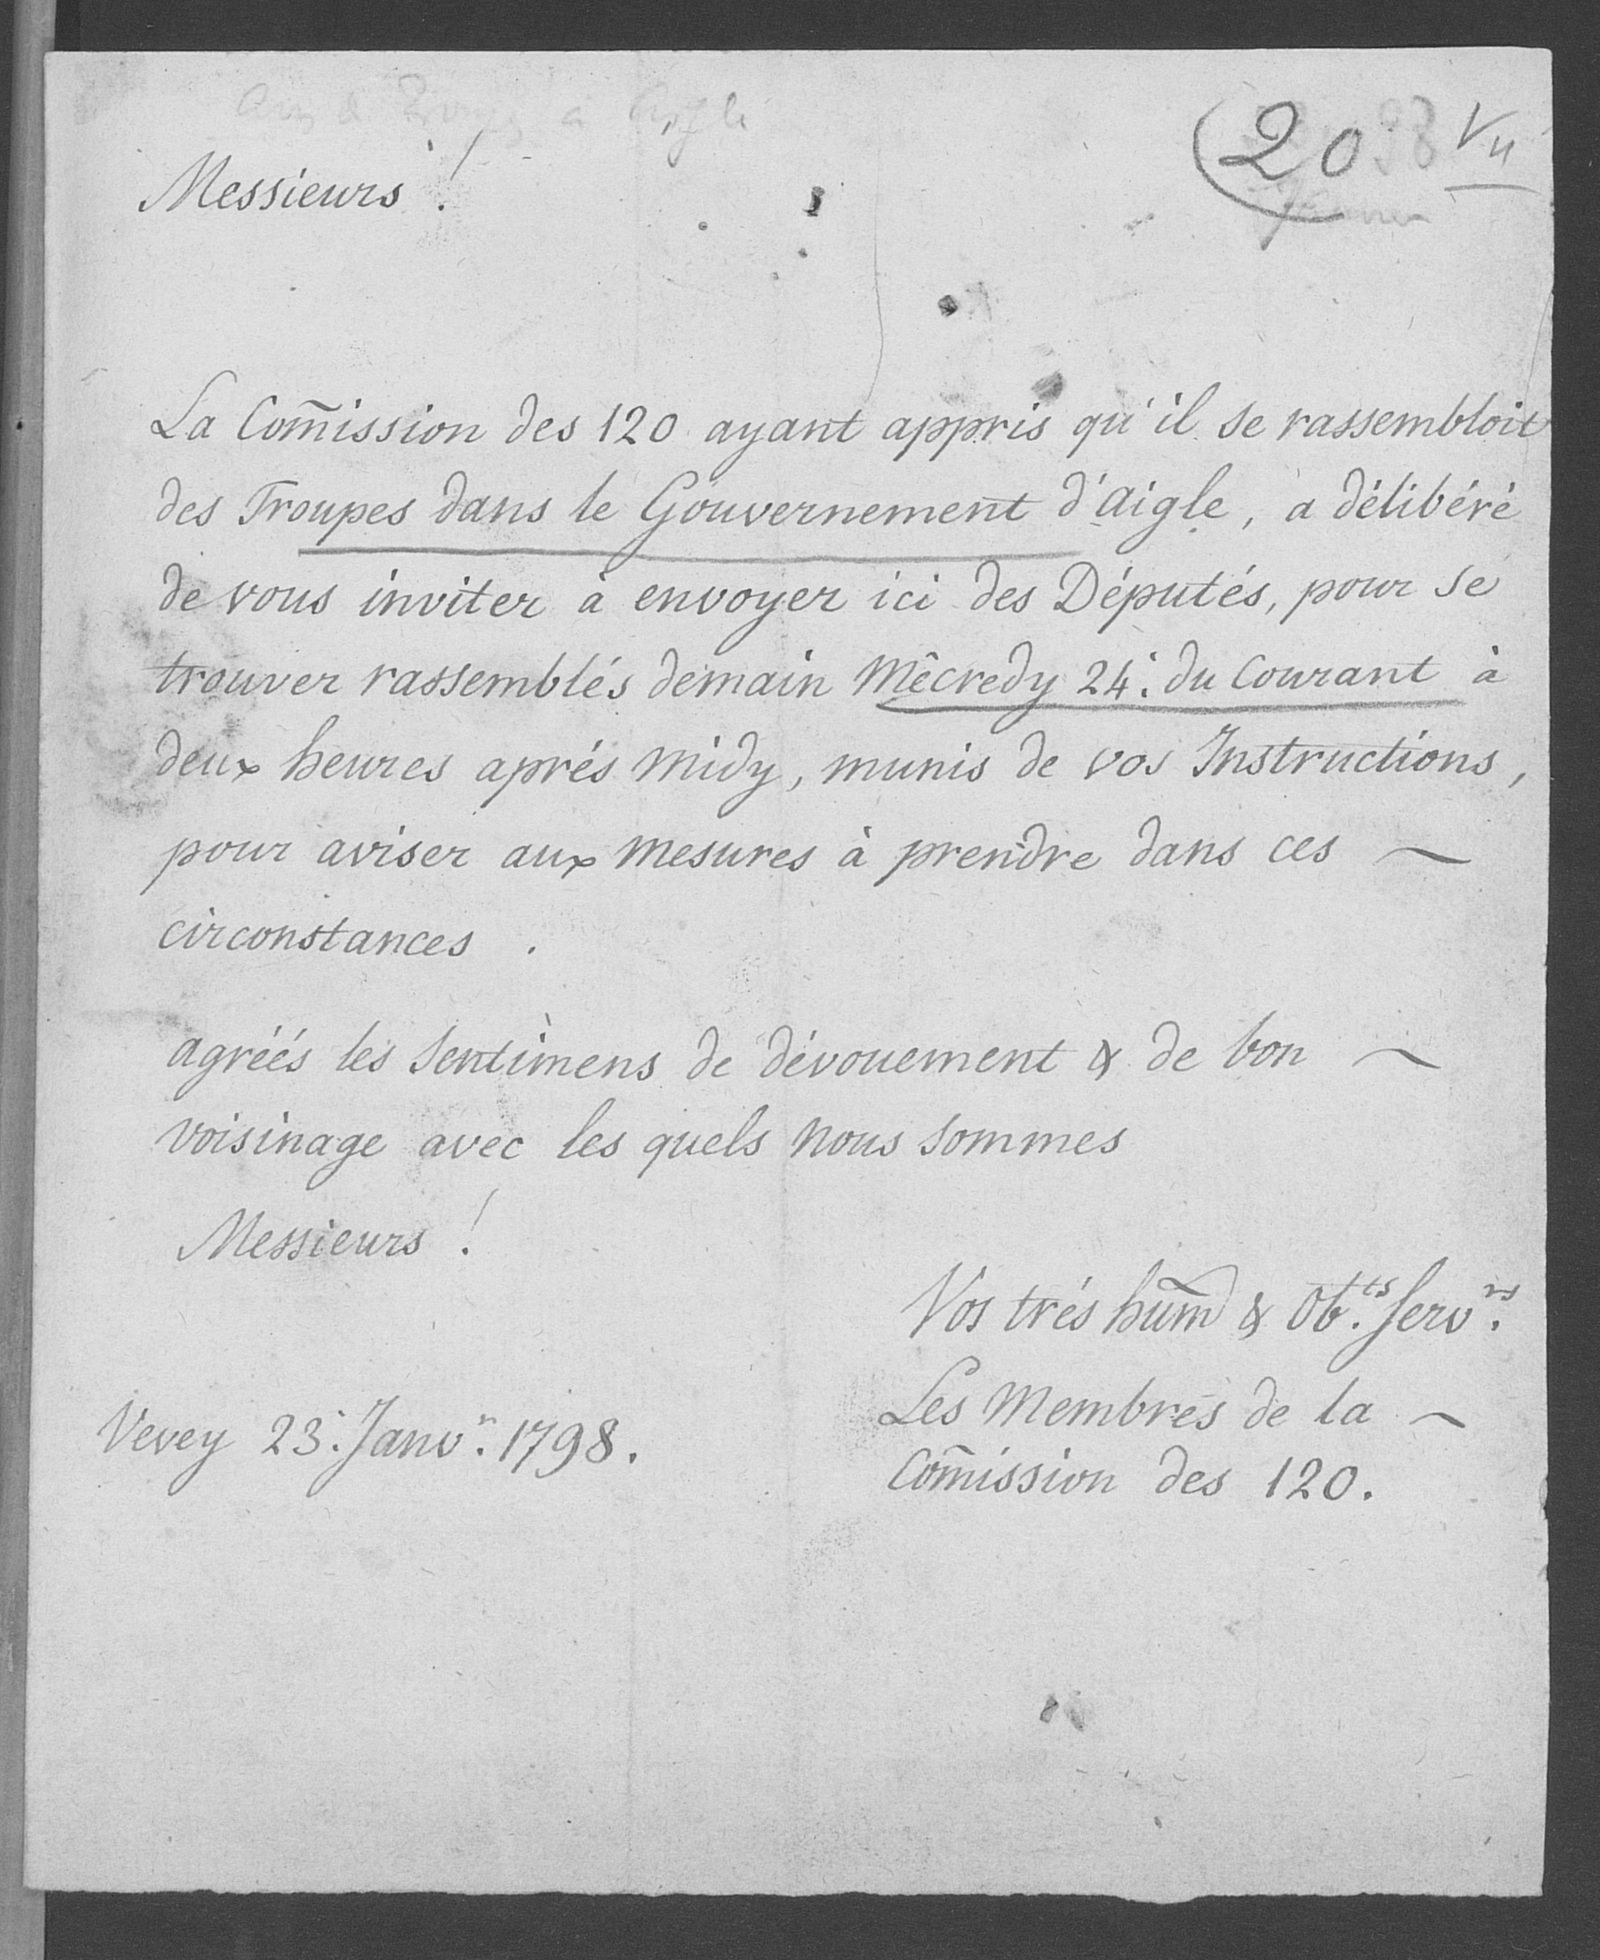 20 Vu
Messieurs !
La Com̄ission des 120 ayant appris qu'il se rassembloit
des Troupes dans le Gouvernement d'aigle, a délibéré
de vous inviter à envoyer ici des Députés, pour se
trouver rassemblés demain Mêcredy 24: du Courant à
deux heures aprés Midy, munis de vos Instructions,
pour aviser aux Mesures à prendre dans ces ~
circonstances .
agréés les Sentimens de dévouement & de bon ~
voisinage avec les quels nous sommes
Messieurs !
Vos trés hum̄ & Ob.ts Serv.rs
Les Membres de la ~
Com̄ission des 120.
Vevey 23: Janv.r 1798.